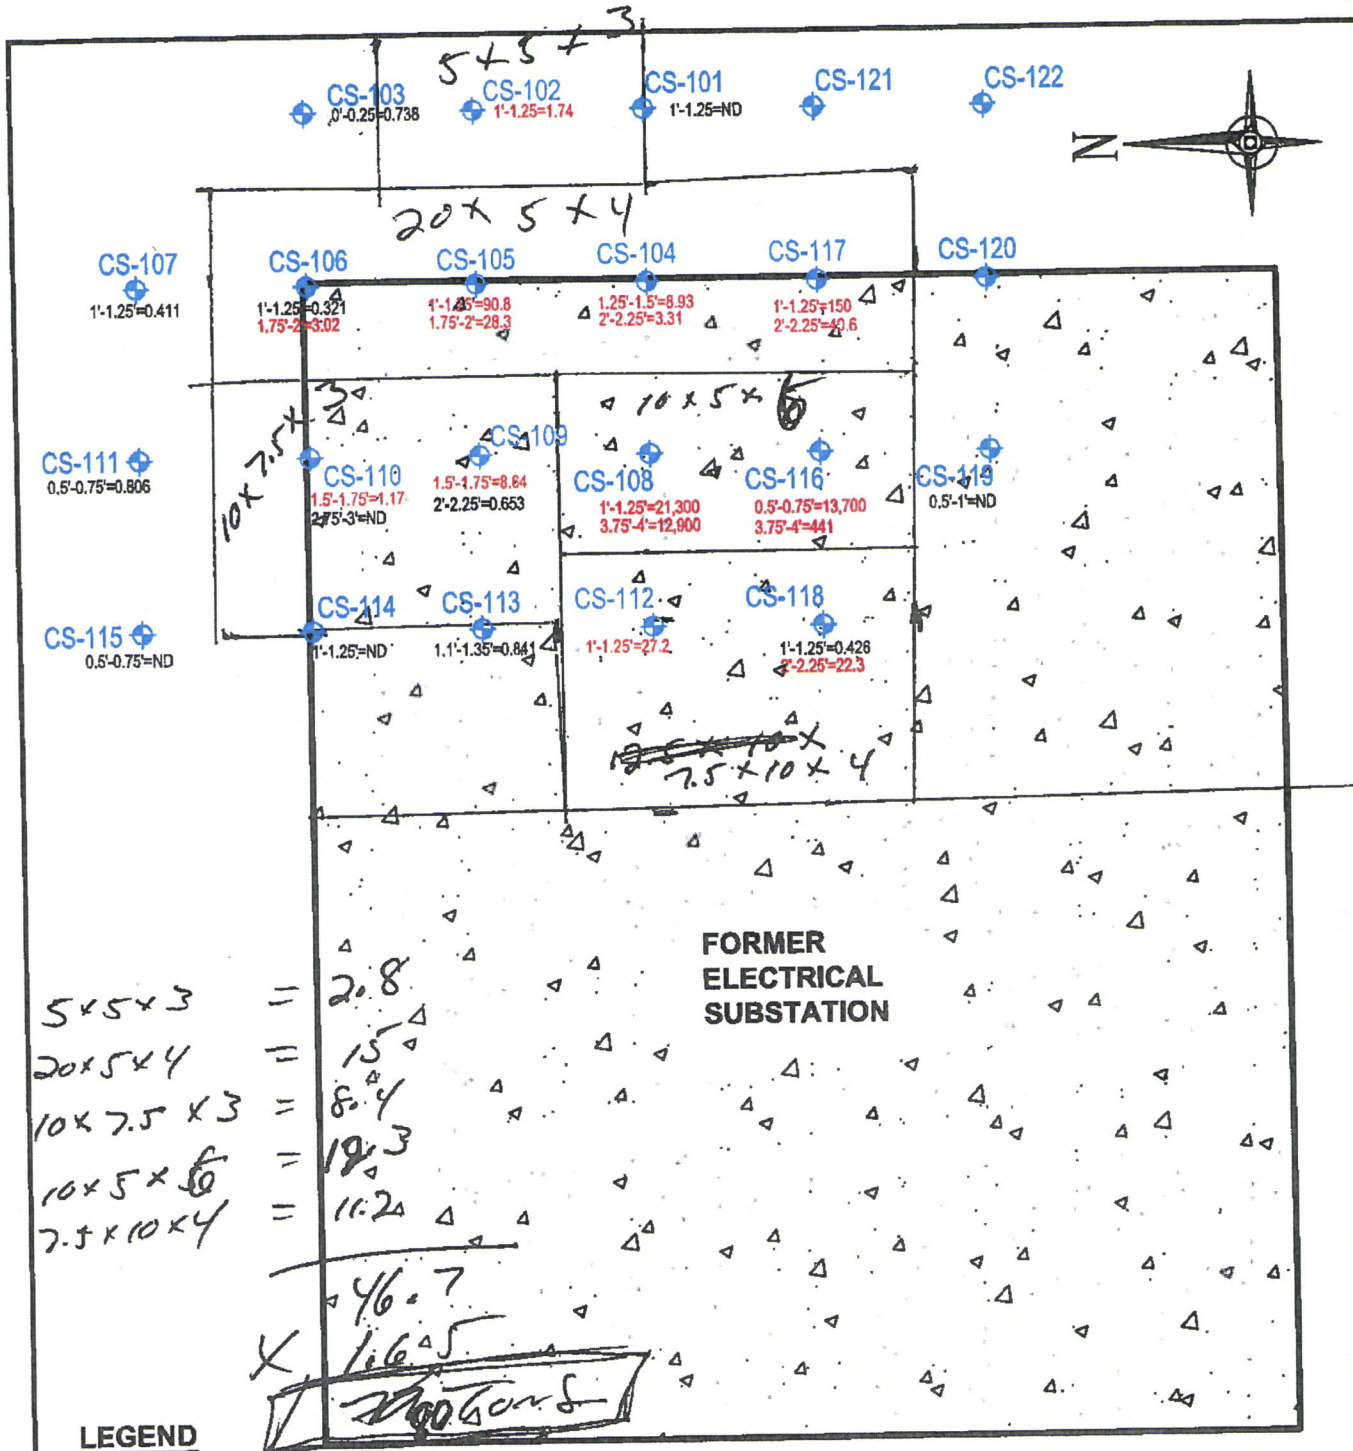 5 x 5 x 3
CS-103
0'-0.25=0.738
CS-102
1'-1.25=1.74
CS-101
1'-1.25=ND
CS-121
CS-122
N
20 x 5 x 4
CS-107
1'-1.25'=0.411
CS-106
1'-1.25=0.321
1.75'-2'=3.02
CS-105
1'-1.25'=90.8
1.75'-2'=28.3
CS-104
1.25'-1.5'=8.93
2'-2.25'=3.31
CS-117
1'-1.25'=150
2'-2.25'=40.6
CS-120
10 x 7.5 x 3
10 x 5 x
CS-111
0.5'-0.75'=0.806
CS-110
1.5'-1.75'=1.17
2.75'-3'=ND
CS-109
1.5'-1.75'=8.64
2'-2.25'=0.653
CS-108
1'-1.25'=21,300
3.75'-4'=12,900
CS-116
0.5'-0.75'=13,700
3.75'-4'=441
CS-119
0.5'-1'=ND
CS-115
0.5'-0.75'=ND
CS-114
1'-1.25'=ND
CS-113
1.1'-1.35'=0.841
CS-112
1'-1.25'=27.2
CS-118
1'-1.25'=0.426
2'-2.25'=22.3
7.5 x 10 x 4
FORMER
ELECTRICAL
SUBSTATION
5 x 5 x 3 = 2.8
20 x 5 x 4 = 15
10 x 7.5 x 3 = 8.4
10 x 5 x =
7.5 x 10 x 4 = 11.2
46.7
X 1.65
Tons
LEGEND